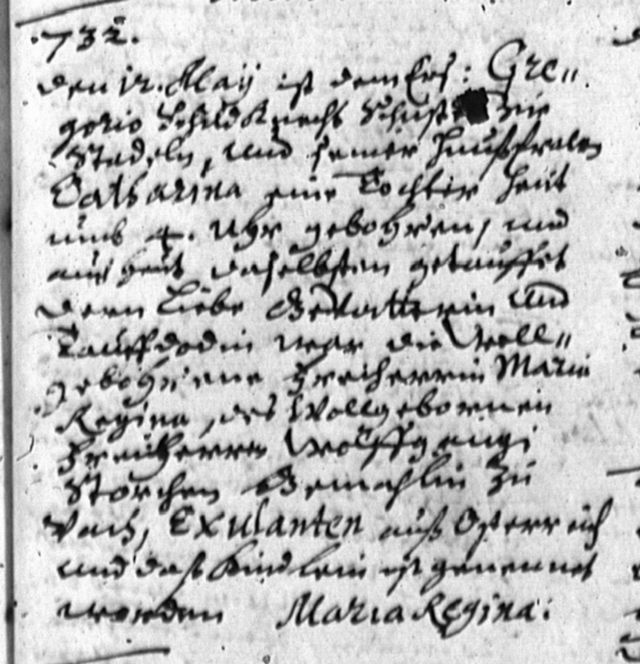 .732.
den 12. Maÿ ist dem Ers: Gre„
gorio Schildknecht Schuster zu
Stadeln, und seiner Haußfrauen
Catharina eine Tochter heüt
umb 4. Uhr gebohren, und
auch heüt daselbsten getauffet
deren Liebe Gevatterin und
Tauffdodin war die Woll„
gebohrene Freiherrin Maria
Regina, des Wollgebornen
Freiherrn Wolffgangi
Storchen Gemahlin zu
Vach, Exulanten auß Österreich
und daß Kindlein ist genennet
worden Maria Regina.